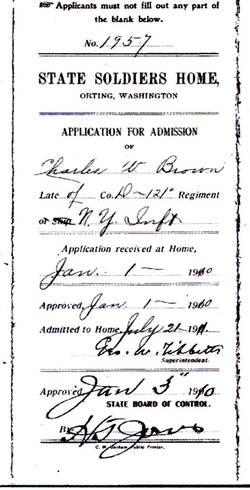 Applicants must not fill out any part of
the blank below.
No. 1957
STATE SOLDIERS HOME,
ORTING, WASHINGTON
APPLICATION FOR ADMISSION
OF
Charles W Brown
Late of Co. D - 121" Regiment
or Ship N. Y. Inft
Application received at Home,
Jan. 1 - 1910
Approved, Jan 1 - 1910
Admitted to Home, July 21 1911
Geo. W. Tibbetts
Superintendent.
Approved, Jan 3" 1910
STATE BOARD OF CONTROL.
By
Public Printer.